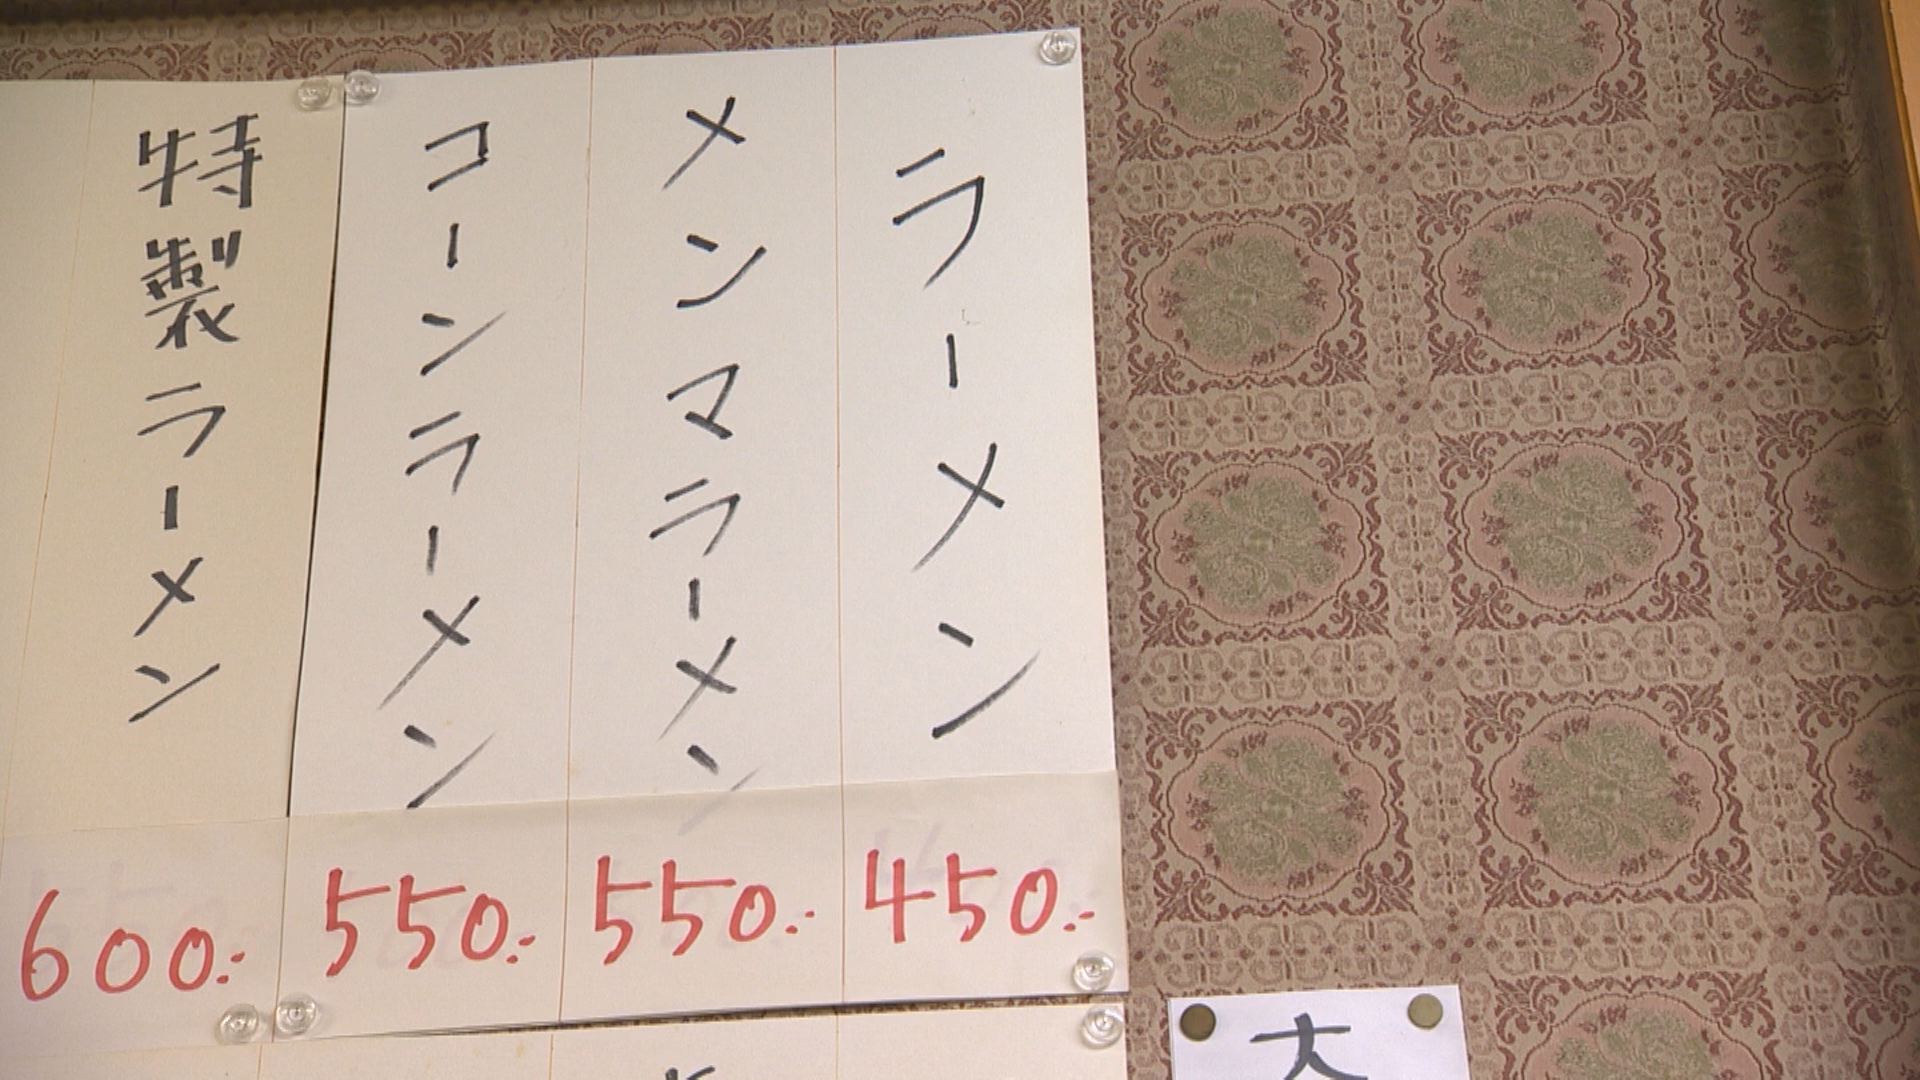 ラーメン
450.-
メンマラーメン
550.-
コーンラーメン
550.-
特製ラーメン
600.-
大